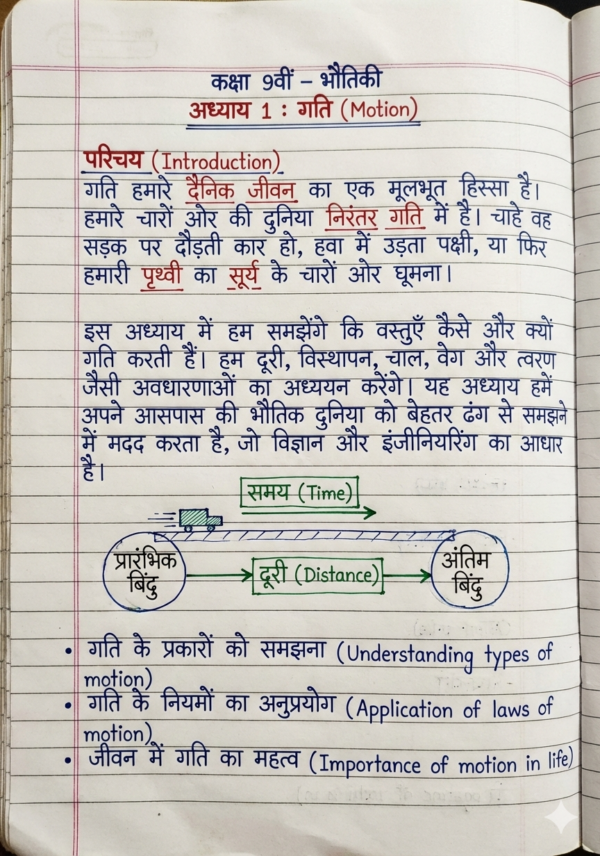 कक्षा 9वीं – भौतिकी
अध्याय 1 : गति (Motion)
परिचय (Introduction)
गति हमारे दैनिक जीवन का एक मूलभूत हिस्सा है।
हमारे चारों ओर की दुनिया निरंतर गति में है। चाहे वह
सड़क पर दौड़ती कार हो, हवा में उड़ता पक्षी, या फिर
हमारी पृथ्वी का सूर्य के चारों ओर घूमना।
इस अध्याय में हम समझेंगे कि वस्तुएँ कैसे और क्यों
गति करती हैं। हम दूरी, विस्थापन, चाल, वेग और त्वरण
जैसी अवधारणाओं का अध्ययन करेंगे। यह अध्याय हमें
अपने आसपास की भौतिक दुनिया को बेहतर ढंग से समझने
में मदद करता है, जो विज्ञान और इंजीनियरिंग का आधार
है।
समय (Time)
प्रारंभिक
बिंदु
दूरी (Distance)
अंतिम
बिंदु
• गति के प्रकारों को समझना (Understanding types of
motion)
• गति के नियमों का अनुप्रयोग (Application of laws of
motion)
• जीवन में गति का महत्व (Importance of motion in life)